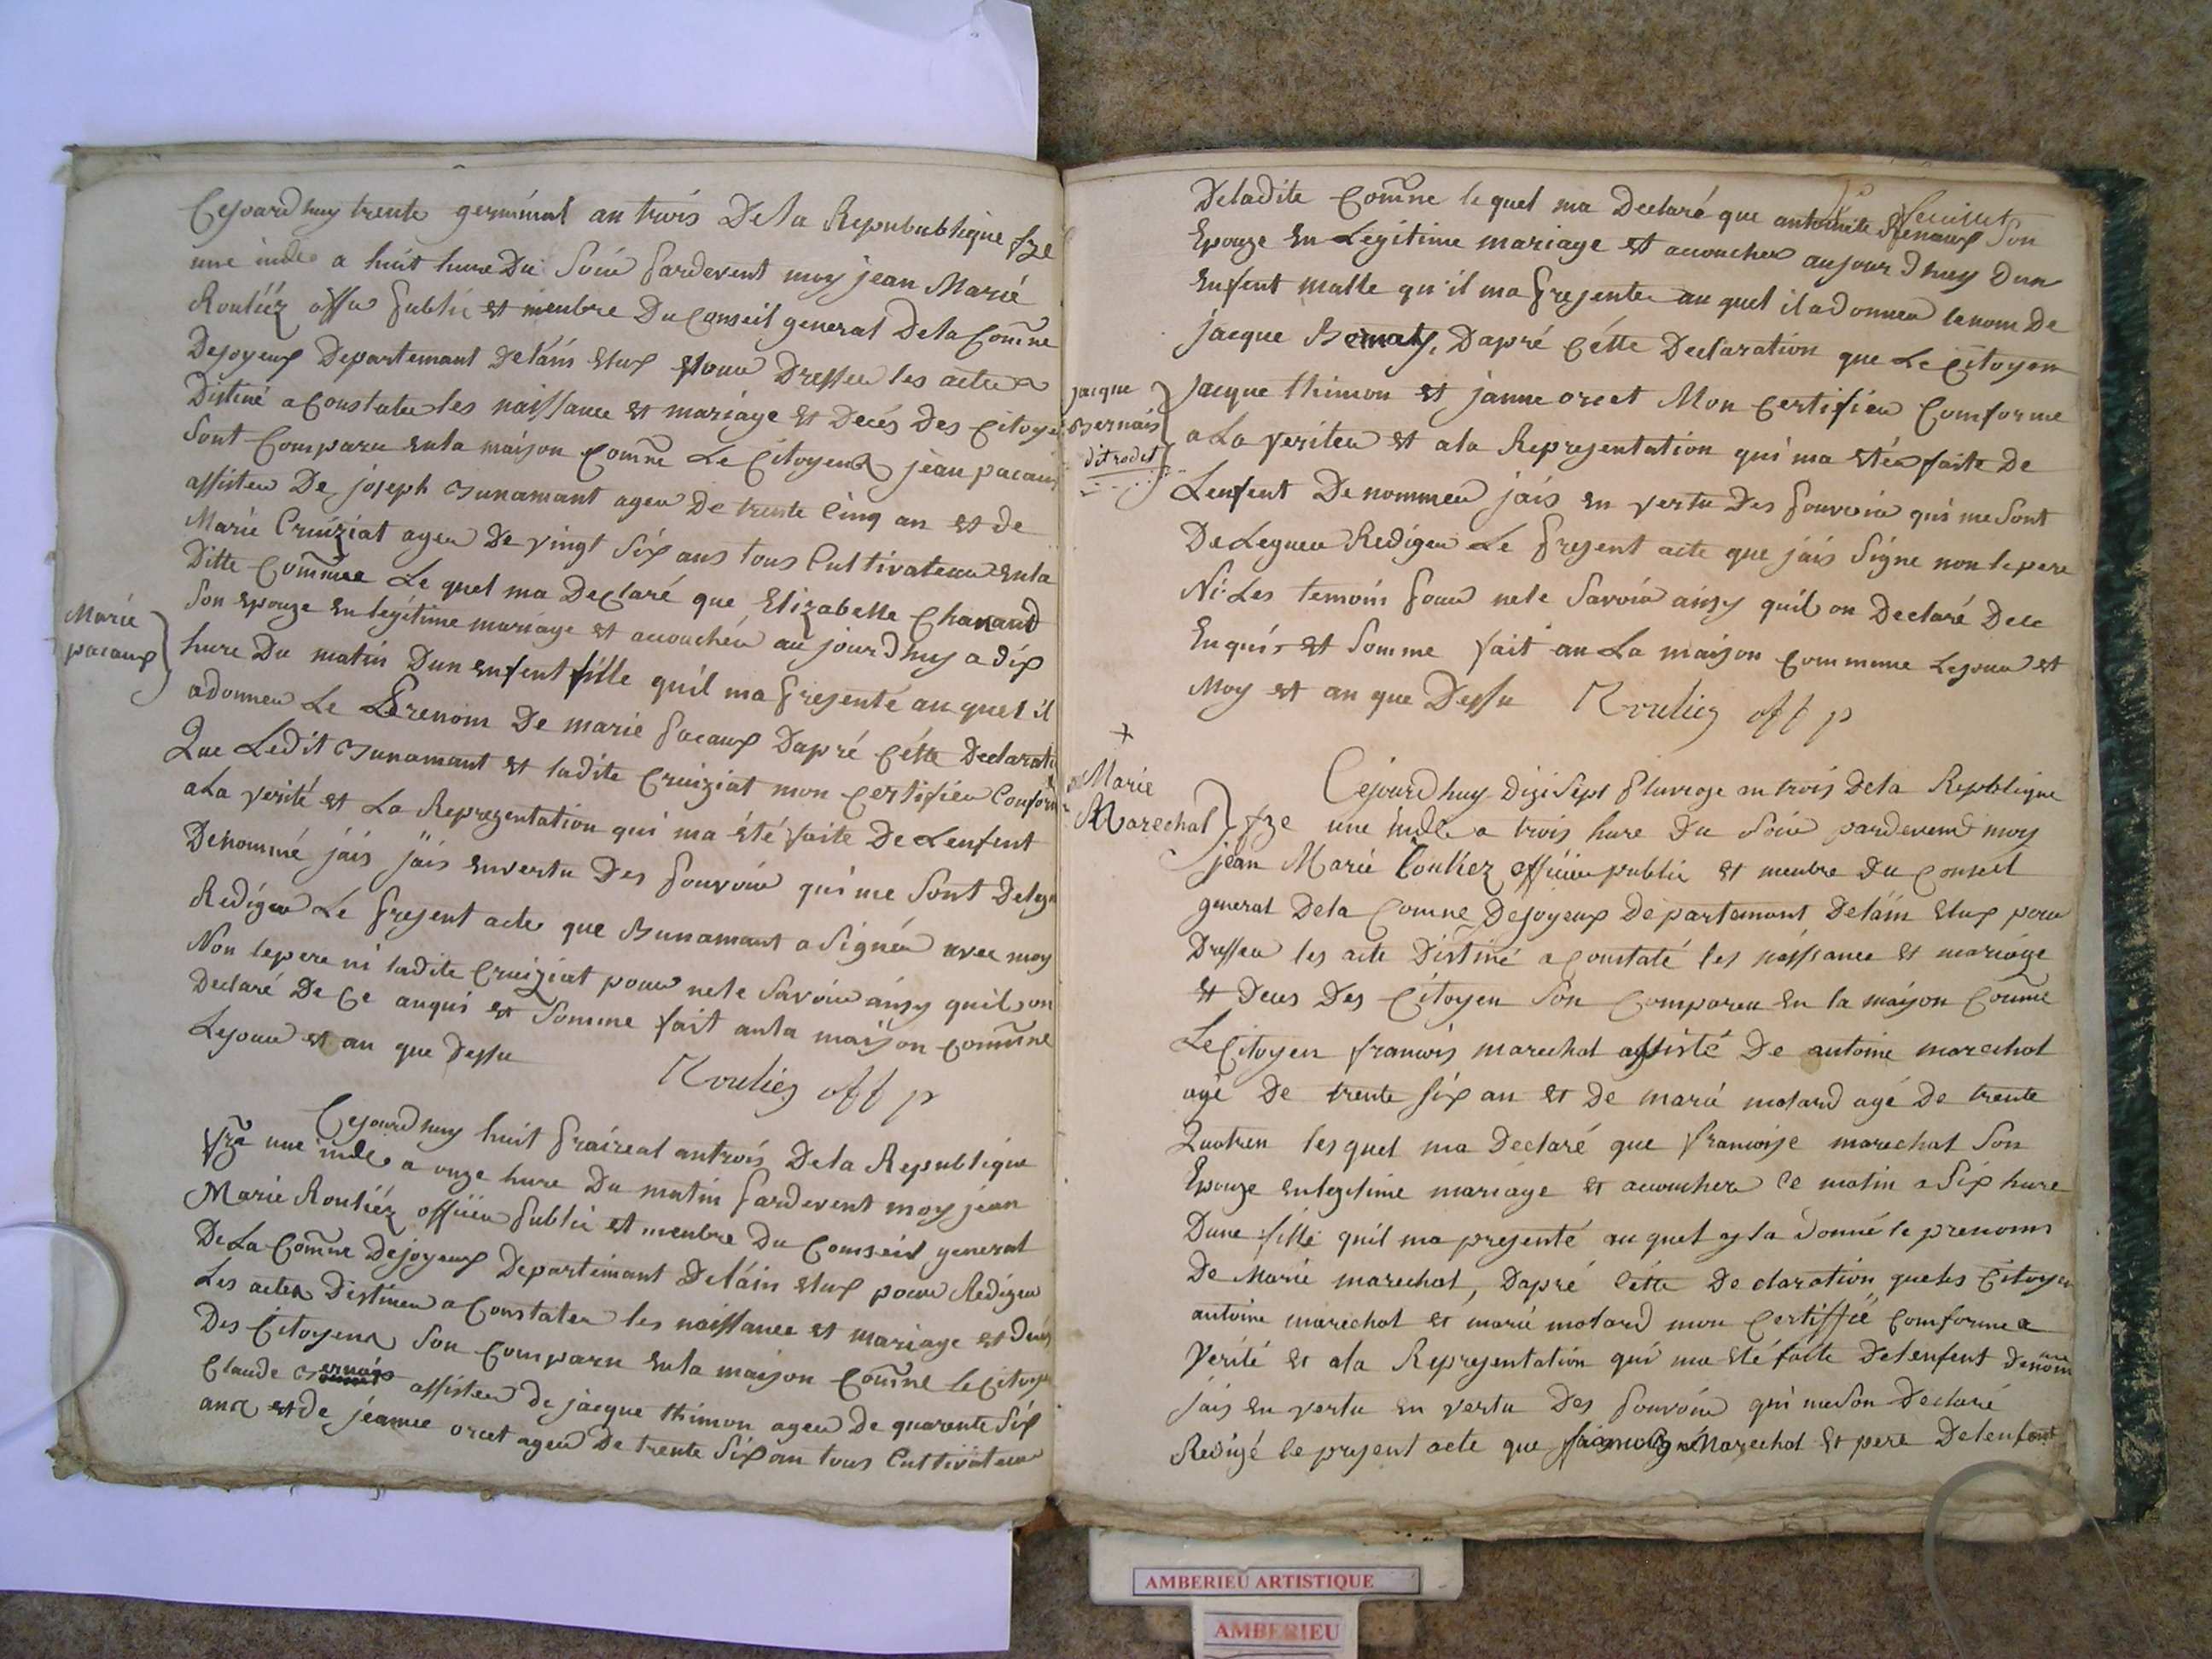 Cejourdhuy trente germinal an trois Dela Repubublique fze
une indle a huit hure Du Soir pardevent moy jean Marie
Rouliéz offer public et menbre Du Conseil general Dela Comne
Dejoyeux Departemant Delain Elux pour Dresser les actes
Distiné a Constater les naissance et mariage et Decés Des Citoyen
Sont Comparu enla maison Comne Le Citoyens jean pacaux
assister De joseph Bunamant ager De trente Cinq an et de
Marie Cruiziat ager De vingt Six ans tous Cultivateur enla
Ditte Commue Le quel ma Declaré que Elizabette Chanard
Marie
pacaux
Son epouze en legitime mariage et accouchér au jourdhuy a dix
hure Du matin Dun enfent fille quil ma presenté au quel il
adonner Le Prenom De marie pacaux Dapré Cétte Declarati
Que Ledit Bunamant et ladite Cruiziat mon Certifier Conforme
aLa verité et La Reprezentation qui ma été faite De Lenfent
Denommé jais jais envertu Des pouvoir qui me Sont Deleg
Rediger Le present acte que Bunamant a Signér avec moy
Non lepere ni ladite Cruiziat pour nele Savoir ainsy quil on
Declaré De Ce anquis et Somme fait anla maison Commne
Lejour et an que Dessu
Rouliez off p
Cejourdhuy huit praireal antrois Dela Republique
frze une indle a onze hure Du matin pardevent moy jean
Marie Rouliéz officier public et menbre Du Conseil general
DeLa Comne Dejoyeux Departemant Delain Elux pour Rediger
Les actes Destiner a Constater les naissance et mariage et decés
Des Citoyens Son Comparu enla maison Comne le Citoyen
Claude Bernais assister de jacque thimon ager De quarente Six
ans et de jeanne orcet ager De trente Six an tous Cultivateur
Deladite Comne le quel ma Declaré que antoinette Son
Epouze en Legitime mariage et accoucher aujourdhuy Dun
enfent malle qu'il ma presenter au quel il adonner lenom De
jacque Dapré Cétte Declaration que Le Citoyen
jacque
Bernais
dit rodet
jacque thimon et janne orcet Mon Certifier Comforme
a La veriter et ala Reprejentation qui ma étér faite De
Lenfent Denommer jais en vertu Des pouvoir qui me Sont
DeLeguer Rediger Le present acte que jais Signe non lepere
Ni Les temoin pour nele Savoir ainsy quil on Declaré Dece
Enquis et Somme fait an La maison Commune Lejour et
Moy et an que Dessu Rouliez off p
+
Marie
Marechal
Cejourdhuy Dizisept pluvioze an trois Dela Republique
fze une indle a trois hure Du Soir pardevend moy
jean Marie Rouliez officier public et menbre Du Conseil
general Dela Comne Dejoyeux Departemant Delain Elux pour
Dresser les acte Distiné a Constaté les naissance et mariage
et Deces Des Citoyen Son Comparu en la maison Comne
Le Citoyen francois marechal assisté De antoine marechal
agé De trente six an et de marie motard agé De trente
Quatren lesquel ma Declaré que francoise marechal Son
Epouze enlegitime mariage et accoucher Ce matin a Six hure
Dune fille quil ma presenté au quel y la donné le prenom
De Marie marechal, Dapré Cétte Declaration queles Citoyen
antoine marechal et marie motard mon Certiffié Comforme a
Verité et ala Representation qui ma été faite Delenfent Denom
mé
jais en vertu en vertu Des pouvoir qui meSon Declaré
Redigé le present acte que Marechal et pere Delenfent
AMBERIEU ARTISTIQUE
AMBERIEU